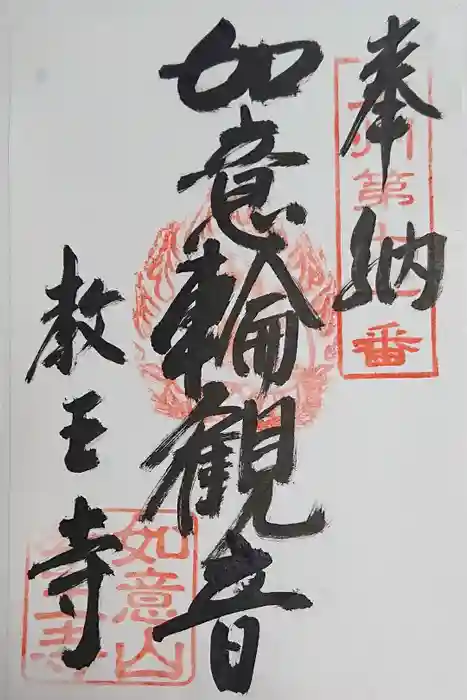 奉納
第
番
如意輪観音
教王寺
如意山
教王寺